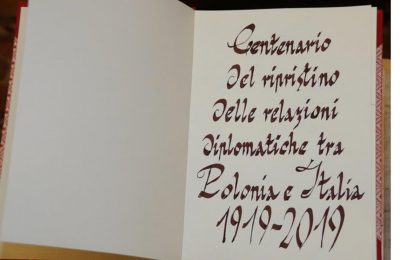 Centenario
Del ripristino
Delle relazioni
Diplomatiche tra
Polonia e Italia
1919-2019